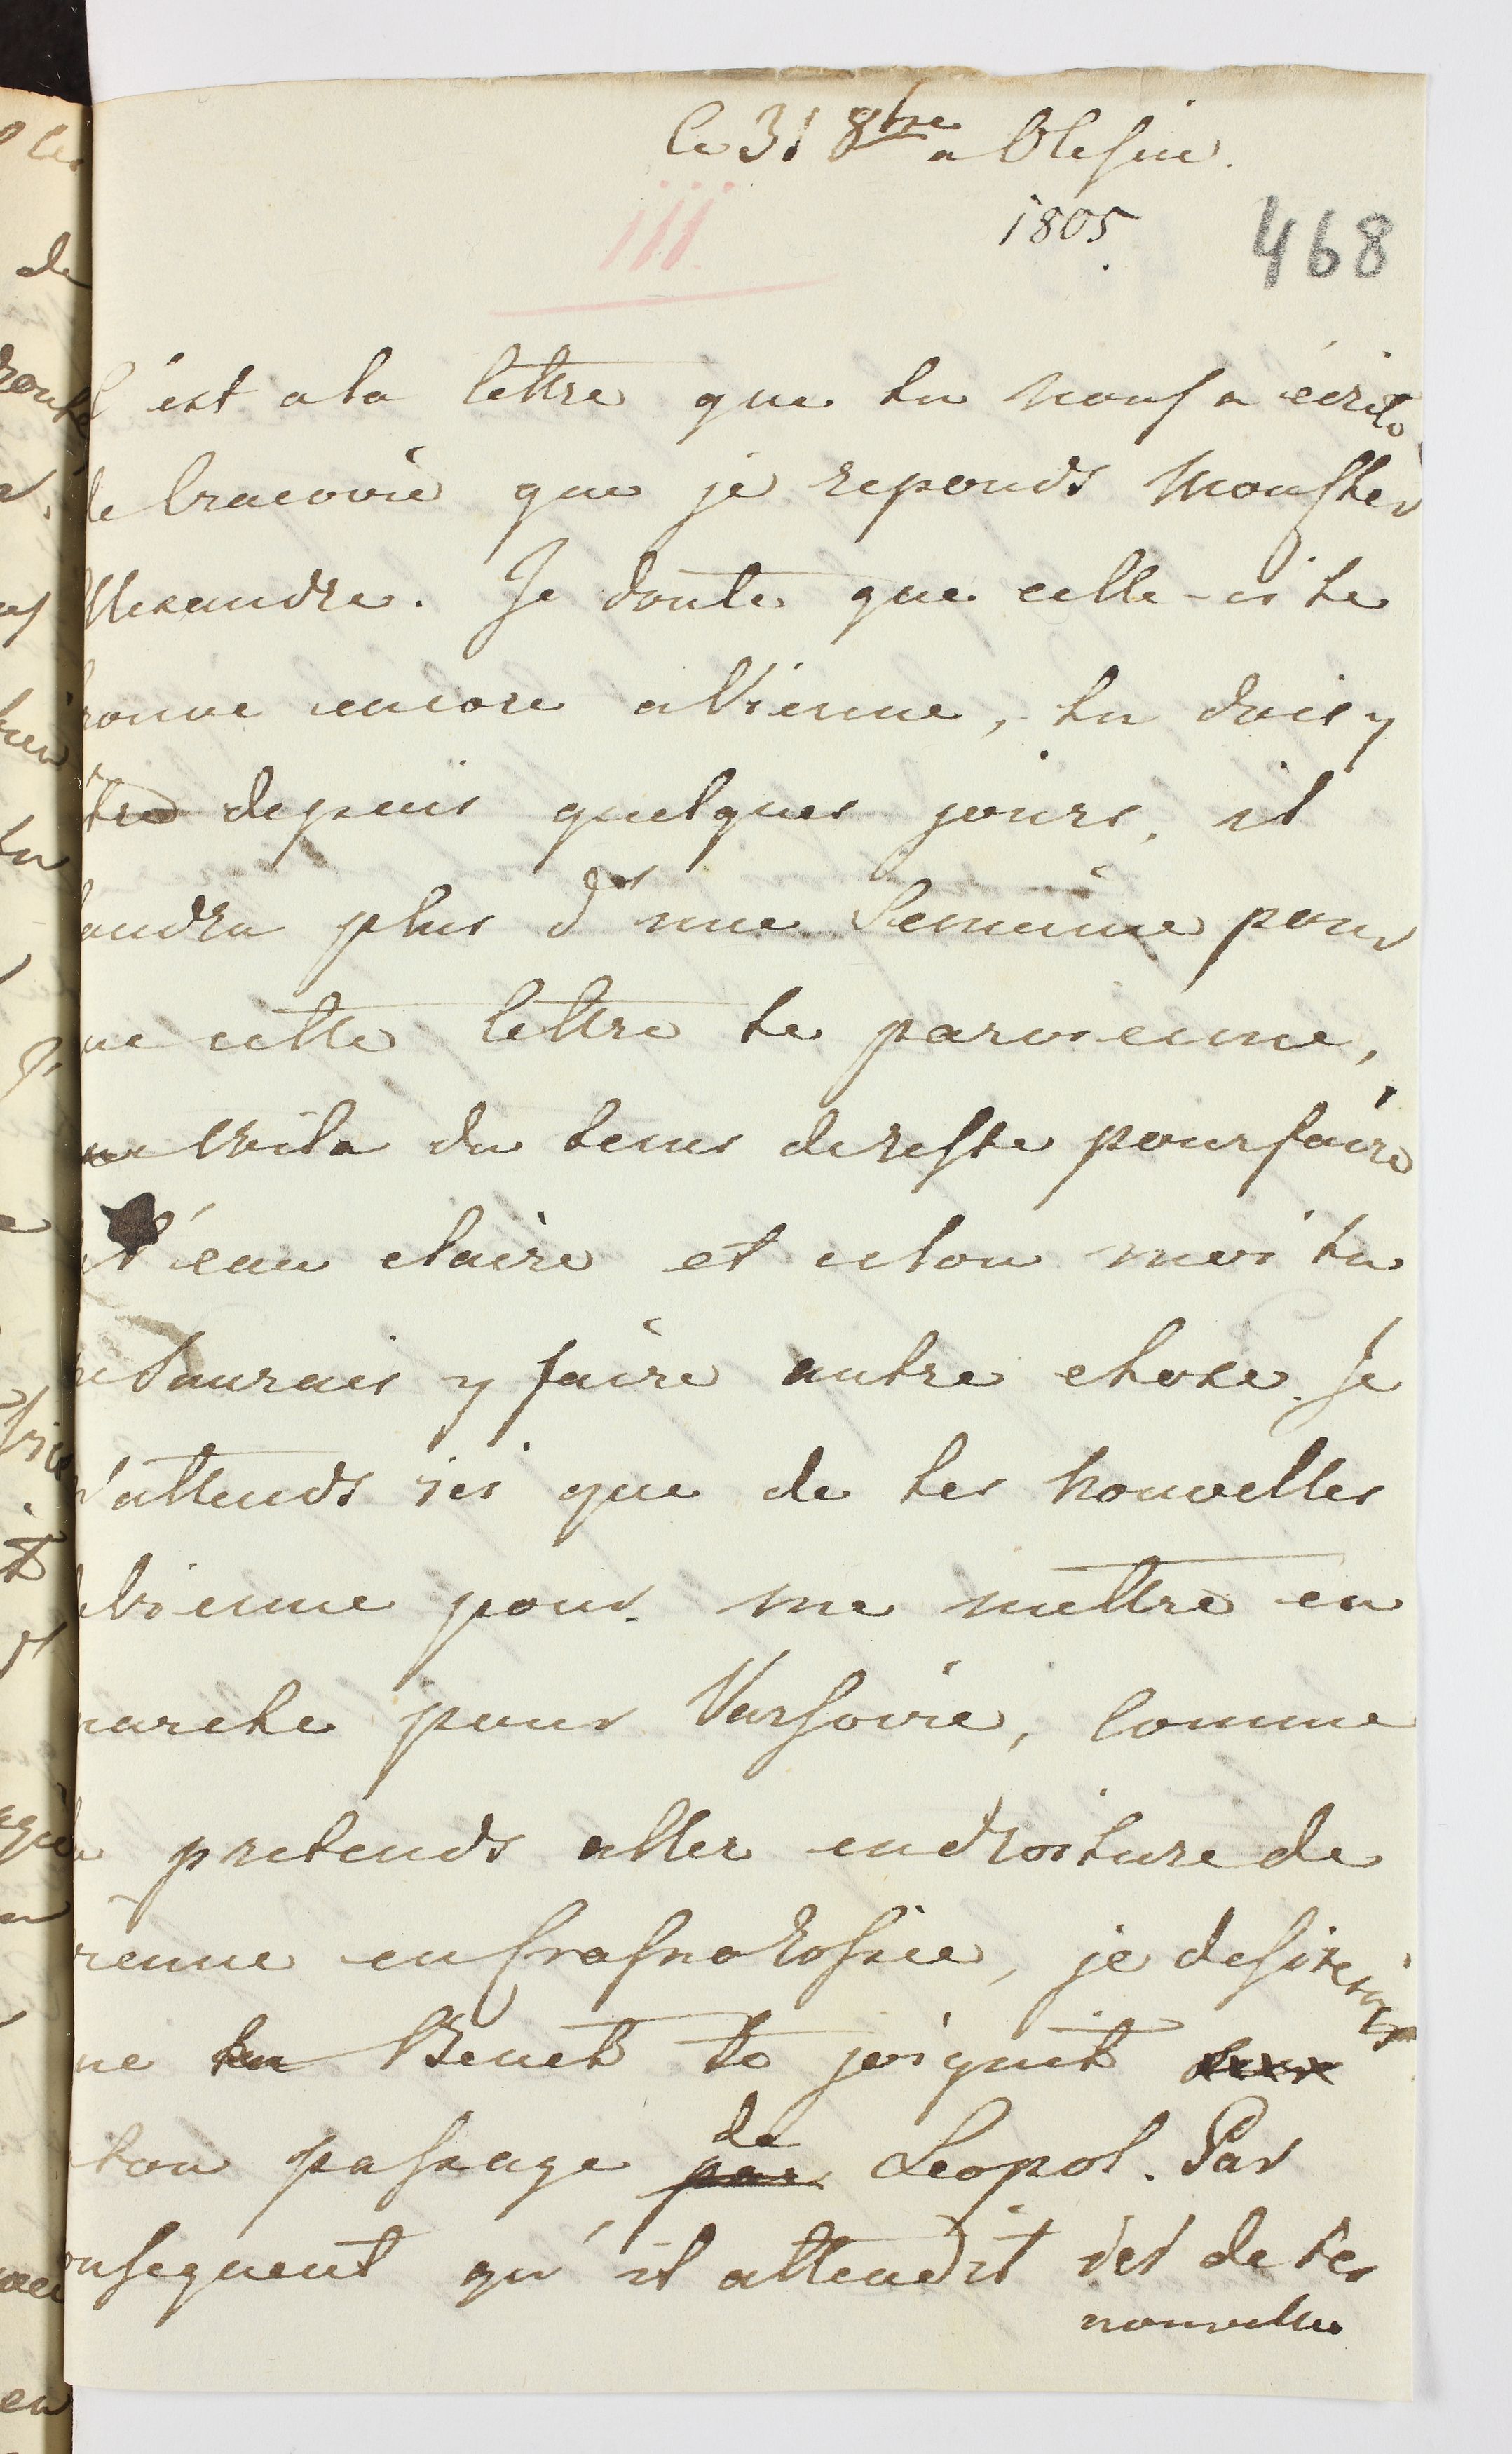 Ce 31 8bre a Olesin.
1805
468
III
C'est a la lettre que tu nous a écrite
de Cracovie que je reponds Monsher
Alexandre. Je doute que celle-ci te
trouve encore a Vienne, tu dois y
être depuis quelques jours, il
faudra plus d'une Semaine pour
que cette lettre te parvienne,
Voila du tems de reste pour faire
de l'eau claire et selon moi tu
ne Saurais y faire autre chose. Je
n'attends ici que de tes nouvelles
de Vienne pour me mettre en
marche pour Varsovie, Comme
tu pretends aller en droiture de
Vienne en Crasnorossie, je desirerais
que tu Benet te joignit
ton passage par de Leopol. Par
consequent qu'il attendit ici de tes
nouvelles